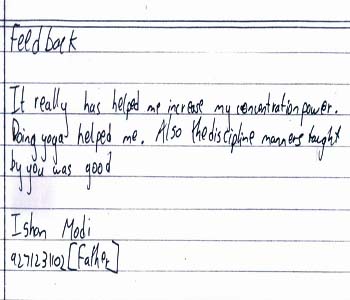 Feedback
It really has helped me increase my concentration power.
Doing yoga helped me. Also the discipline manners taught
by you was good
Ishan Modi
9271231102 [Father]